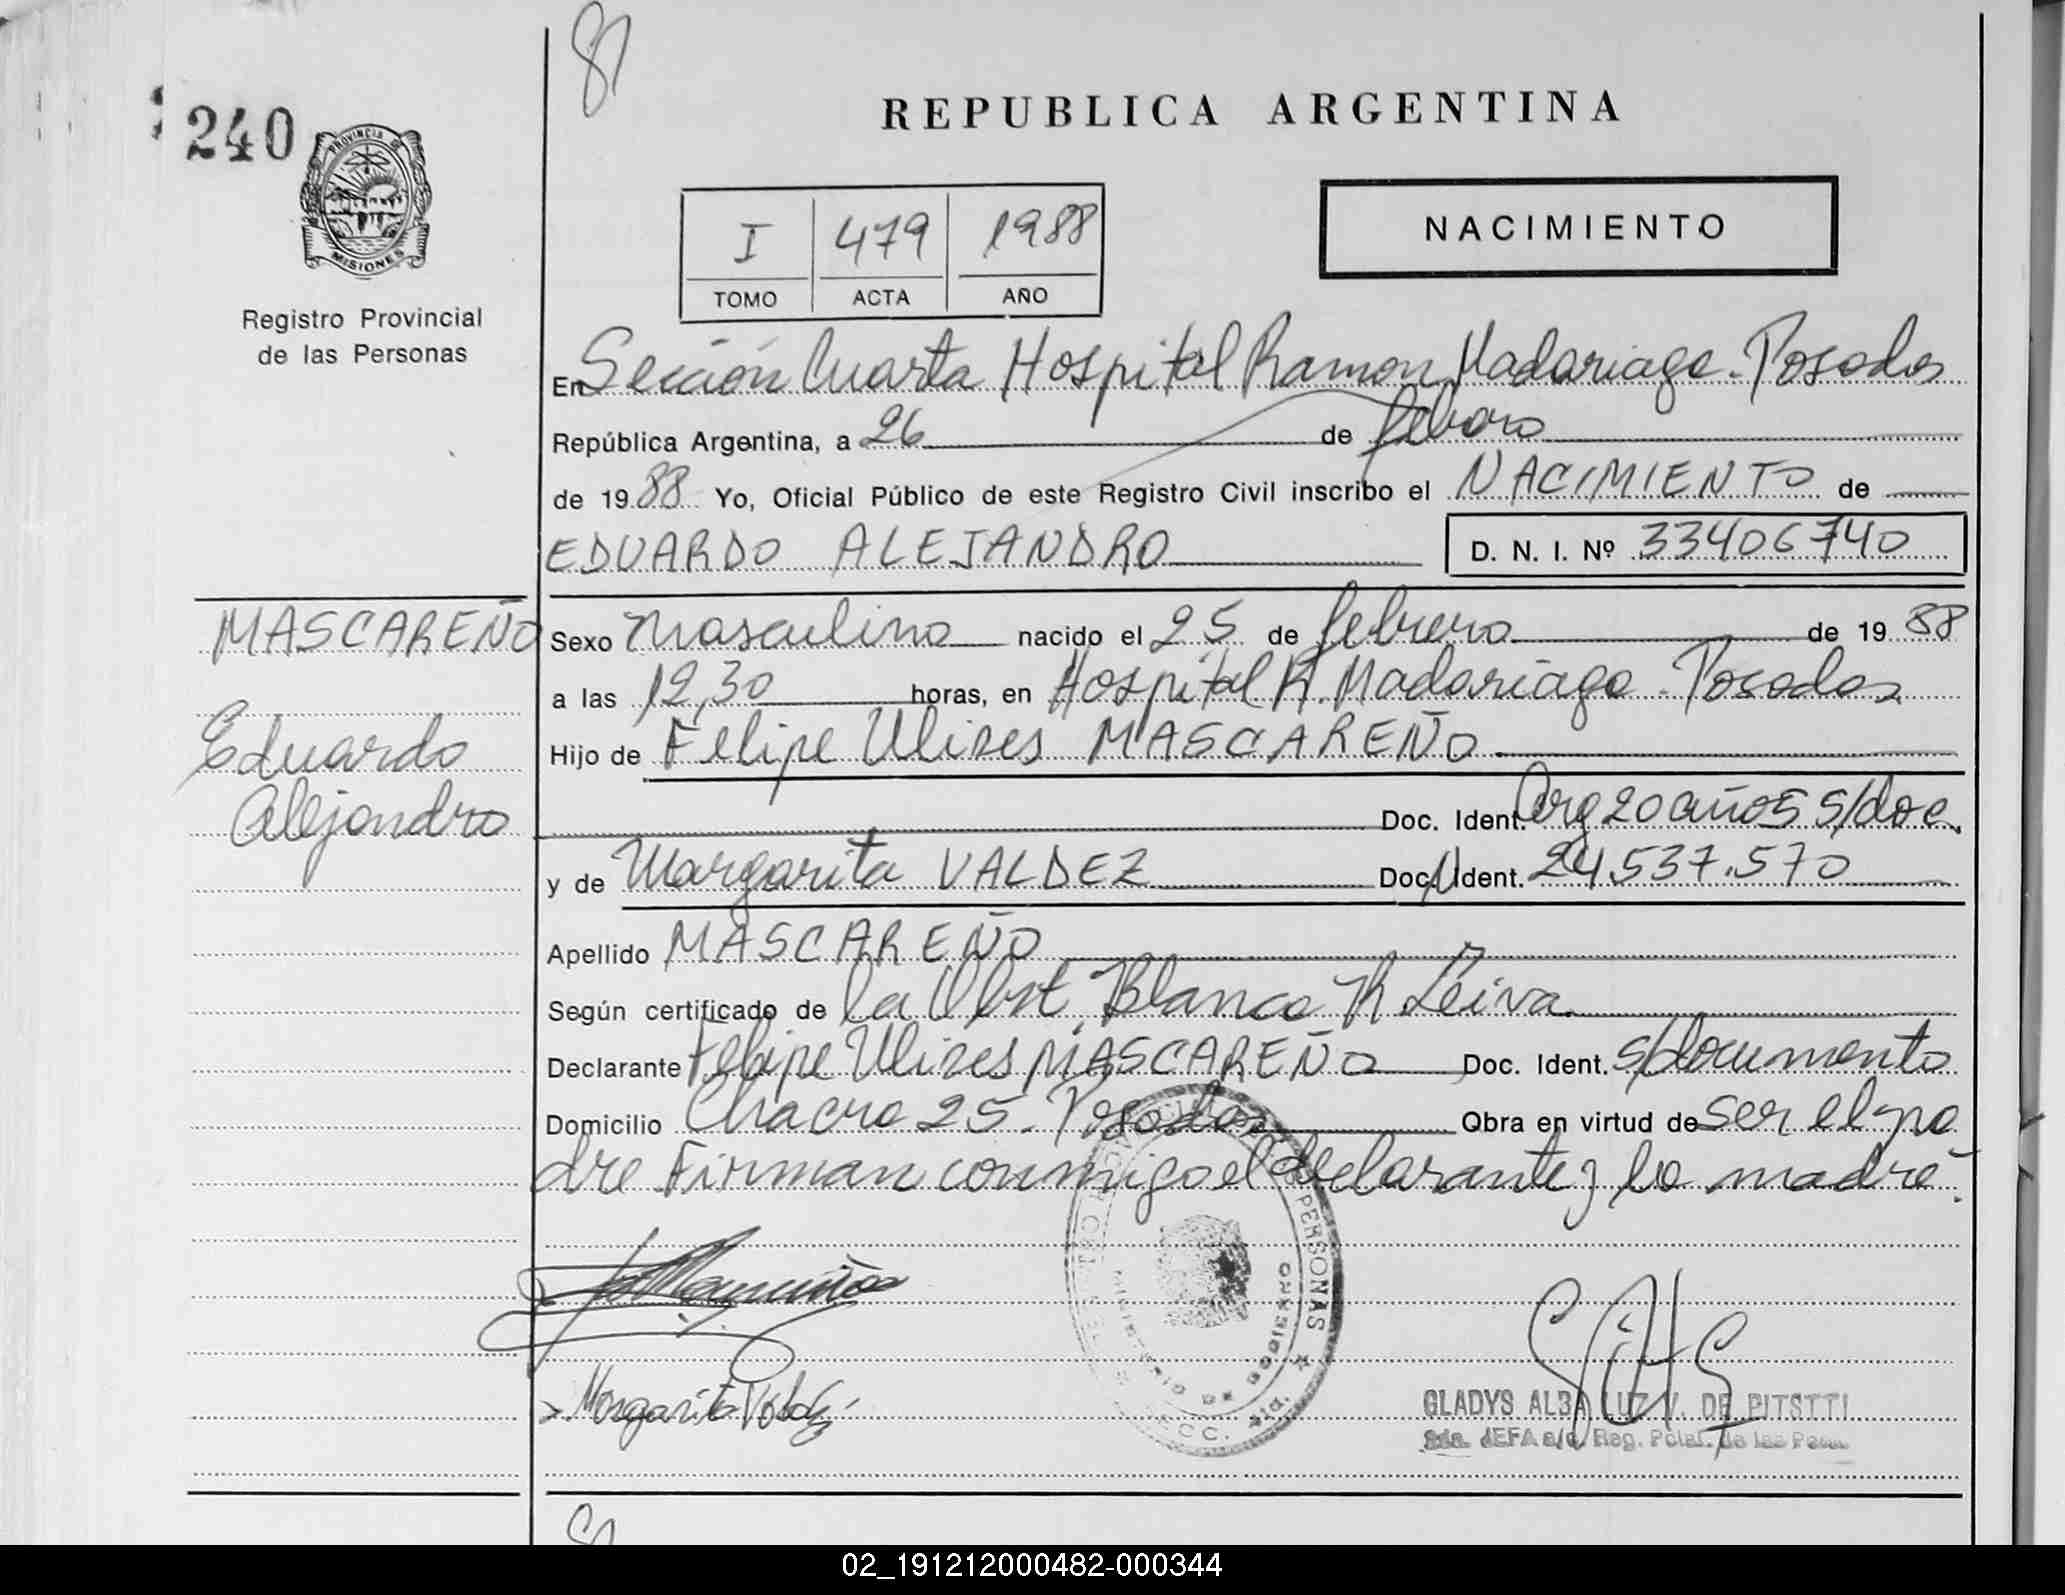 81
240
PROVINCIA DE
MISIONES
Registro Provincial
de las Personas
REPUBLICA ARGENTINA
I 479 1988
TOMO ACTA AÑO
NACIMIENTO
En Sección Cuarta Hospital Ramon Madariaga - Posadas
República Argentina, a 26 de febrero
de 1988 Yo, Oficial Público de este Registro Civil inscribo el NACIMIENTO de
EDUARDO ALEJANDRO D. N. I. Nº 33406740
MASCAREÑO
Eduardo
Alejandro
Sexo masculino nacido el 25 de febrero de 1988
a las 12,30 horas, en Hospital R. Madariaga - Posadas
Hijo de Felipe Ulises MASCAREÑO
Doc. Ident. Arg 20 años s/doc.
y de Margarita VALDEZ Doc. Ident. 24.537.570
Apellido MASCAREÑO
Según certificado de la Obst. Blanca R Leiva
Declarante Felipe Ulises MASCAREÑO Doc. Ident. s/documento
Domicilio Chacra 25 - Posadas Obra en virtud de ser el pa
dre Firman conmigo el declarante y la madre.
PERSONAS
MINISTERIO DE GOBIERNO
SECC. 4ta.
Margarita Valdez
GLADYS ALBA LUZ V. DE PITSTTI
JEFA a/c. Reg. de las Pers.
02_191212000482-000344